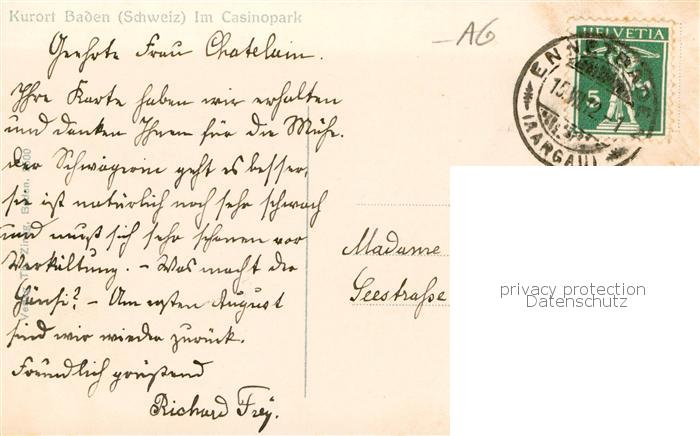 Kurort Baden (Schweiz) Im Casinopark
AG
HELVETIA
5
ENNETBADEN
(AARGAU)
Geehrte Frau Chatelain.
Ihre Karte haben wir erhalten
und danken Ihnen für die Mühe.
Der Schwägerin geht es besser,
sie ist natürlich noch sehr schwach
und muß sich sehr schonen vor
Verkältung. – Was macht der
Hänsi? – Am ersten August
sind wir wieder zurück.
Freundlich grüßend
Richard Frey.
Madame
Seestraße
Verlag Zinng, Baden.
privacy protection
Datenschutz